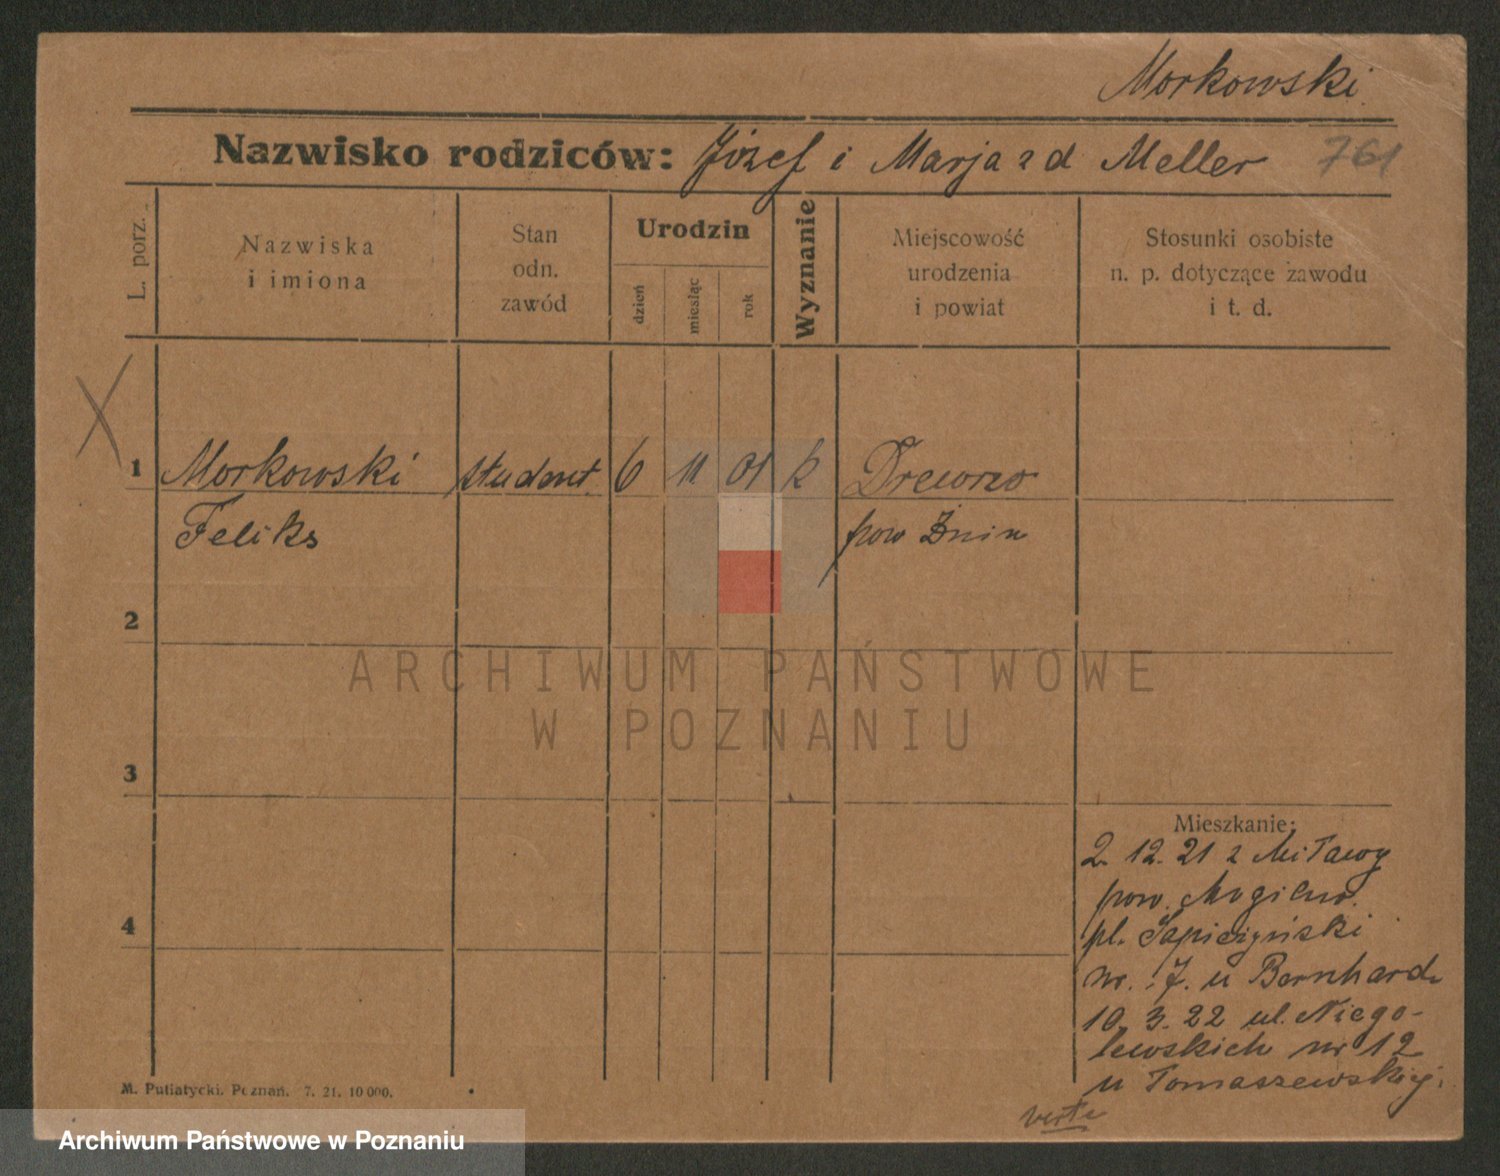 Morkowski
Nazwisko rodziców: Józef i Marja z d Meller 761
L. porz.
Nazwiska
i imiona
Stan
odn.
zawód
Urodzin
dzień
miesiąc
rok
Wyznanie
Miejscowość
urodzenia
i powiat
Stosunki osobiste
n. p. dotyczące zawodu
i t. d.
X
1 Morkowski student 6 11 01 k Drewno
Feliks pow Żnin
2
ARCHIWUM PAŃSTWOWE
W POZNANIU
3
Mieszkanie:
2. 12. 21 z Miławy
pow. Mogilno.
pl. Sapieżyński
nr. 7. u Bernhard
10. 3. 22 ul. Niego-
lewskich nr 12
u Tomaszewskiej.
4
verte
M. Putiatycki. Poznań. 7. 21. 10 000.
Archiwum Państwowe w Poznaniu